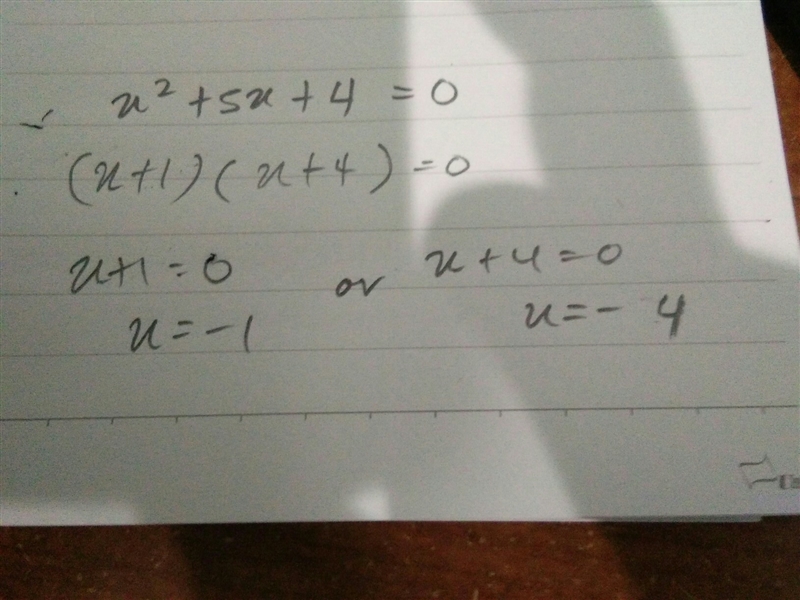 x² + 5x + 4 = 0
(x+1) (x+4) = 0
x+1 = 0 or x + 4 = 0
x = -1 x = - 4